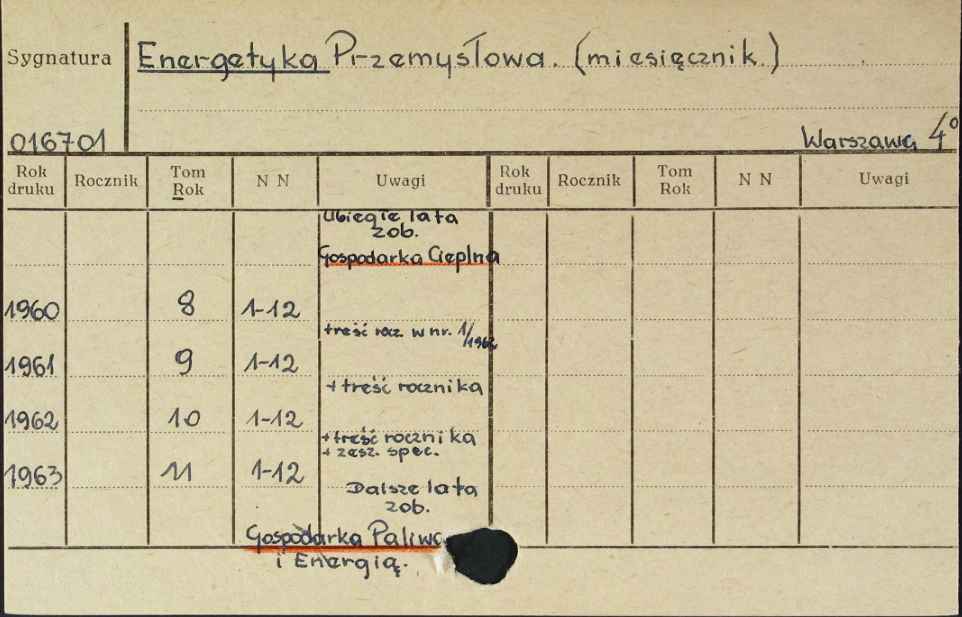 Sygnatura
Energetyka Przemysłowa. (miesięcznik.)
016701
Warszawa 4°
Rok druku Rocznik Tom Rok N N Uwagi Rok druku Rocznik Tom Rok N N Uwagi
Ubiegłe lata
zob.
Gospodarka Cieplna
1960 8 1-12
+treść rocz. w nr. 1/1962
1961 9 1-12
+ treść rocznika
1962 10 1-12
+treść rocznika
+ zesz. spec.
1963 11 1-12
Dalsze lata
zob.
Gospodarka Paliwa
i Energią.